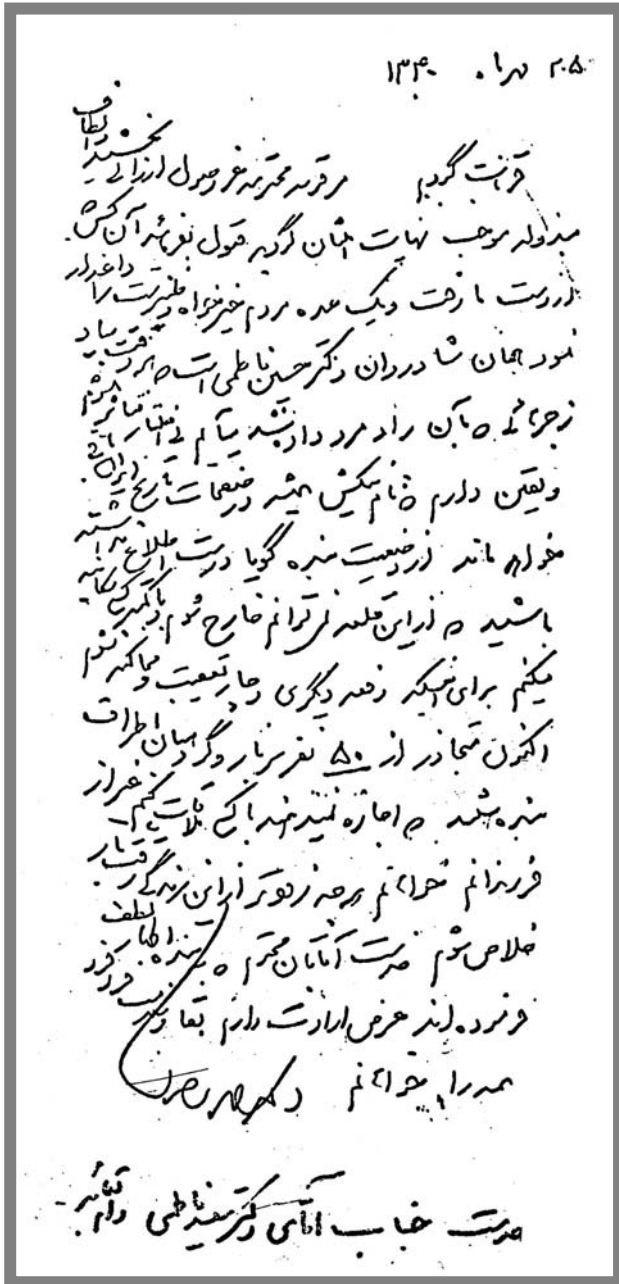 ۲۰۵ مهرماه ۱۳۴۰
قربانت گردم مرقومه محترمه عز وصول ارزانی بخشید الطاف
مبذوله موجب نهایت امتنان گردید قبول بفرمائید آن کس که
از دست ما رفت و یک عده مردم خیرخواه وطن‌پرست را داغدار
نمود همان شادروان دکتر حسین فاطمی است هر وقت بیاد
زجرهائی که بآن رادمرد دادند می‌آیم بی‌اختیار متأثر میشوم
و یقین دارم که نام نیکش همیشه در صفحات تاریخ ایران باقی
خواهد ماند از وضعیت بنده گویا درست اطلاع نداشته
باشید که از این قلعه نمی‌توانم خارج شوم و با کمتر کسی مکاتبه
میکنم برای اینکه دفعه دیگری دچار تعقیب و محاکمه نشوم
اکنون متجاوز از ۵۰ نفر سرباز و گروهبان اطراف
بنده هستند که اجازه نمیدهند با کسی ملاقات کنم غیر از
فرزندانم میخواهم هرچه زودتر از این زندگی رقت‌بار
خلاص شوم خدمت آقایان محترم که به بنده اظهار لطف
فرموده‌اند عرض ارادت دارم بقا و سلامت فرد فرد
همه را خواهانم دکتر محمد مصدق
خدمت جناب آقای دکتر سعید فاطمی دام بقائه